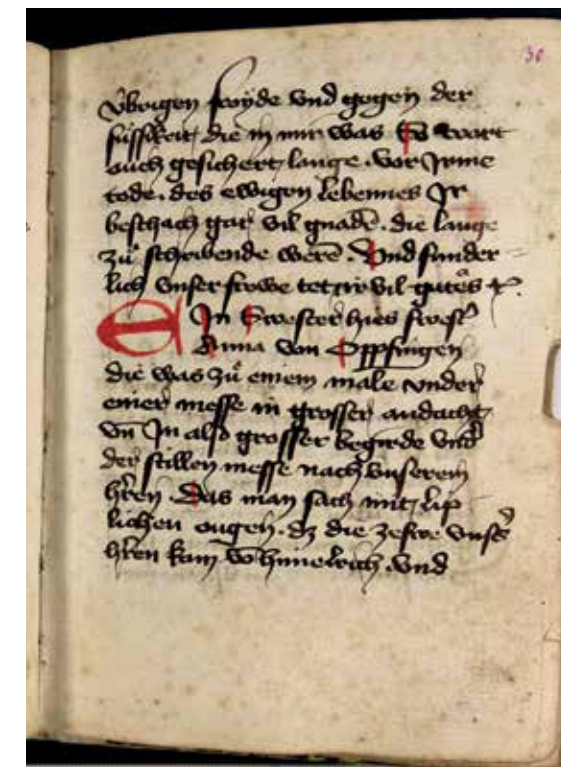 30
v̊brigen froyde vnd gegen der
süssikeit die in mir was Es wart
ouch gesichert lange vor Jrme
tode. des ewigen lebennes Jr
beschach gar vil gnadē. die lange
zů schribende werē. Vnd sunder
lich vnser frowe tet ir vil gůtes
EJn Swester hies swest̄
Anna von Oppfingen
die was zů einem male vnder
einer messe in grosser andacht
vn̄ Jn also grosser begirde vnd
der stillen messe nach vnserem
h̄ren. Das man sach mit lip
lichen ougen. dz die zeswe vnsers
h̄ren kam vō himelrich. vnd